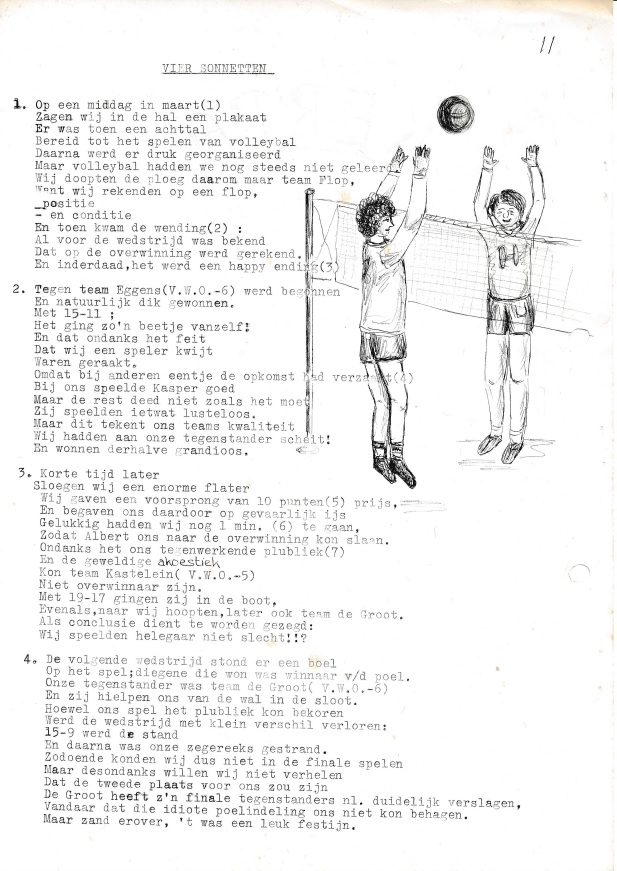 11
VIER SONNETTEN
1. Op een middag in maart(1)
Zagen wij in de hal een plakaat
Er was toen een achttal
Bereid tot het spelen van volleybal
Daarna werd er druk georganiseerd
Maar volleybal hadden we nog steeds niet geleerd.
Wij doopten de ploeg daarom maar team Flop,
Want wij rekenden op een flop,
_positie
- en conditie
En toen kwam de wending(2) :
Al voor de wedstrijd was bekend
Dat op de overwinning werd gerekend.
En inderdaad,het werd een happy ending(3)
2. Tegen team Eggens(V.W.O.-6) werd begonnen
En natuurlijk dik gewonnen.
Met 15-11 ;
Het ging zo'n beetje vanzelf!
En dat ondanks het feit
Dat wij een speler kwijt
Waren geraakt.
Omdat bij anderen eentje de opkomst had verzaakt(4)
Bij ons speelde Kasper goed
Maar de rest deed niet zoals het moet
Zij speelden ietwat lusteloos.
Maar dit tekent ons teams kwaliteit
Wij hadden aan onze tegenstander scheit!
En wonnen derhalve grandioos.
3. Korte tijd later
Sloegen wij een enorme flater
Wij gaven een voorsprong van 10 punten(5) prijs,
En begaven ons daardoor op gevaarlijk ijs
Gelukkig hadden wij nog 1 min. (6) te gaan,
Zodat Albert ons naar de overwinning kon slaan.
Ondanks het ons tegenwerkende plubliek(7)
En de geweldige akoestiek
Kon team Kastelein( V.W.O.-5)
Niet overwinnaar zijn.
Met 19-17 gingen zij in de boot,
Evenals,naar wij hoopten,later ook team de Groot.
Als conclusie dient te worden gezegd:
Wij speelden helegaar niet slecht!!?
4. De volgende wedstrijd stond er een boel
Op het spel;diegene die won was winnaar v/d poel.
Onze tegenstander was team de Groot( V.W.O.-6)
En zij hielpen ons van de wal in de sloot.
Hoewel ons spel het plubliek kon bekoren
Werd de wedstrijd met klein verschil verloren:
15-9 werd de stand
En daarna was onze zegereeks gestrand.
Zodoende konden wij dus niet in de finale spelen
Maar desondanks willen wij niet verhelen
Dat de tweede plaats voor ons zou zijn
De Groot heeft z'n finale tegenstanders nl. duidelijk verslagen,
Vandaar dat die idiote poelindeling ons niet kon behagen.
Maar zand erover, 't was een leuk festijn.